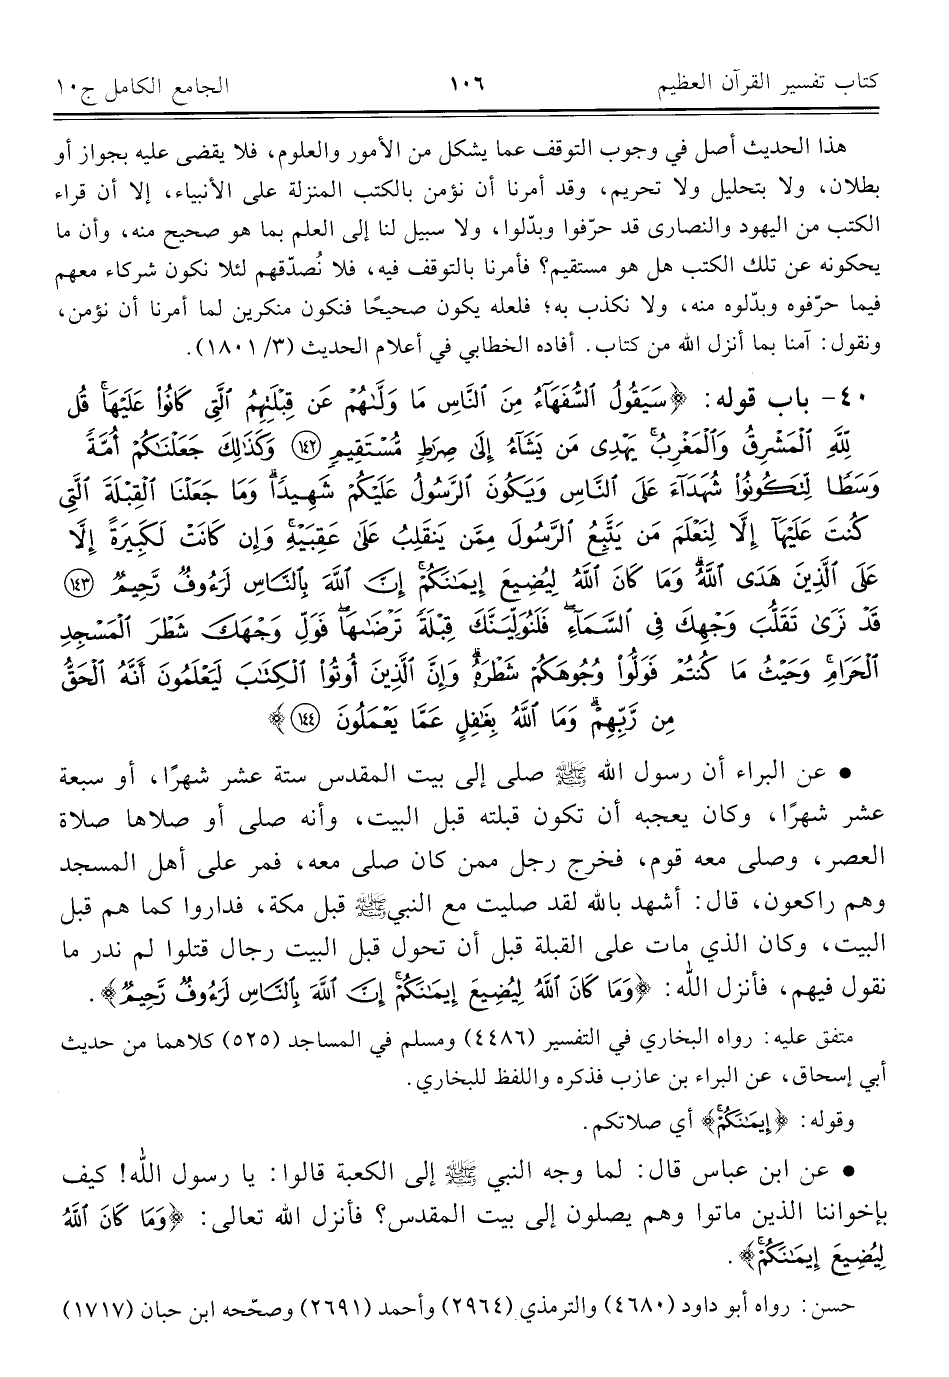 كتاب تفسير القرآن العظيم ١٠٦ الجامع الكامل ج١٠
هذا الحديث أصل في وجوب التوقف عما يشكل من الأمور والعلوم، فلا يقضى عليه بجواز أو
بطلان، ولا بتحليل ولا تحريم، وقد أمرنا أن نؤمن بالكتب المنزلة على الأنبياء، إلا أن قراء
الكتب من اليهود والنصارى قد حرّفوا وبدّلوا، ولا سبيل لنا إلى العلم بما هو صحيح منه، وأن ما
يحكونه عن تلك الكتب هل هو مستقيم؟ فأمرنا بالتوقف فيه، فلا نُصدّقهم لئلا نكون شركاء معهم
فيما حرّفوه وبدّلوه منه، ولا نكذب به؛ فلعله يكون صحيحًا فنكون منكرين لما أمرنا أن نؤمن،
ونقول: آمنا بما أنزل الله من كتاب. أفاده الخطابي في أعلام الحديث (٣/ ١٨٠١).
٤٠- باب قوله: ﴿سَيَقُولُ ٱلسُّفَهَآءُ مِنَ ٱلنَّاسِ مَا وَلَّىٰهُمْ عَن قِبْلَتِهِمُ ٱلَّتِى كَانُوا۟ عَلَيْهَا ۚ قُل
لِّلَّهِ ٱلْمَشْرِقُ وَٱلْمَغْرِبُ ۚ يَهْدِى مَن يَشَآءُ إِلَىٰ صِرَٰطٍ مُّسْتَقِيمٍ ﴿١٤٢﴾ وَكَذَٰلِكَ جَعَلْنَٰكُمْ أُمَّةً
وَسَطًا لِّتَكُونُوا۟ شُهَدَآءَ عَلَى ٱلنَّاسِ وَيَكُونَ ٱلرَّسُولُ عَلَيْكُمْ شَهِيدًا ۗ وَمَا جَعَلْنَا ٱلْقِبْلَةَ ٱلَّتِى
كُنتَ عَلَيْهَآ إِلَّا لِنَعْلَمَ مَن يَتَّبِعُ ٱلرَّسُولَ مِمَّن يَنقَلِبُ عَلَىٰ عَقِبَيْهِ ۚ وَإِن كَانَتْ لَكَبِيرَةً إِلَّا
عَلَى ٱلَّذِينَ هَدَى ٱللَّهُ ۗ وَمَا كَانَ ٱللَّهُ لِيُضِيعَ إِيمَٰنَكُمْ ۚ إِنَّ ٱللَّهَ بِٱلنَّاسِ لَرَءُوفٌ رَّحِيمٌ ﴿١٤٣﴾
قَدْ نَرَىٰ تَقَلُّبَ وَجْهِكَ فِى ٱلسَّمَآءِ ۖ فَلَنُوَلِّيَنَّكَ قِبْلَةً تَرْضَىٰهَا ۚ فَوَلِّ وَجْهَكَ شَطْرَ ٱلْمَسْجِدِ
ٱلْحَرَامِ ۚ وَحَيْثُ مَا كُنتُمْ فَوَلُّوا۟ وُجُوهَكُمْ شَطْرَهُۥ ۗ وَإِنَّ ٱلَّذِينَ أُوتُوا۟ ٱلْكِتَٰبَ لَيَعْلَمُونَ أَنَّهُ ٱلْحَقُّ
مِن رَّبِّهِمْ ۗ وَمَا ٱللَّهُ بِغَٰفِلٍ عَمَّا يَعْمَلُونَ ﴿١٤٤﴾﴾
● عن البراء أن رسول الله ﷺ صلى إلى بيت المقدس ستة عشر شهرًا، أو سبعة
عشر شهرًا، وكان يعجبه أن تكون قبلته قبل البيت، وأنه صلى أو صلاها صلاة
العصر، وصلى معه قوم، فخرج رجل ممن كان صلى معه، فمر على أهل المسجد
وهم راكعون، قال: أشهد بالله لقد صليت مع النبي ﷺ قبل مكة، فداروا كما هم قبل
البيت، وكان الذي مات على القبلة قبل أن تحول قبل البيت رجال قتلوا لم ندر ما
نقول فيهم، فأنزل الله: ﴿وَمَا كَانَ ٱللَّهُ لِيُضِيعَ إِيمَٰنَكُمْ ۚ إِنَّ ٱللَّهَ بِٱلنَّاسِ لَرَءُوفٌ رَّحِيمٌ﴾.
متفق عليه: رواه البخاري في التفسير (٤٤٨٦) ومسلم في المساجد (٥٢٥) كلاهما من حديث
أبي إسحاق، عن البراء بن عازب فذكره واللفظ للبخاري.
وقوله: ﴿إِيمَٰنَكُمْ ۚ﴾ أي صلاتكم.
● عن ابن عباس قال: لما وجه النبي ﷺ إلى الكعبة قالوا: يا رسول الله! كيف
بإخواننا الذين ماتوا وهم يصلون إلى بيت المقدس؟ فأنزل الله تعالى: ﴿وَمَا كَانَ ٱللَّهُ
لِيُضِيعَ إِيمَٰنَكُمْ ۚ﴾.
حسن: رواه أبو داود (٤٦٨٠) والترمذي (٢٩٦٤) وأحمد (٢٦٩١) وصحّحه ابن حبان (١٧١٧)